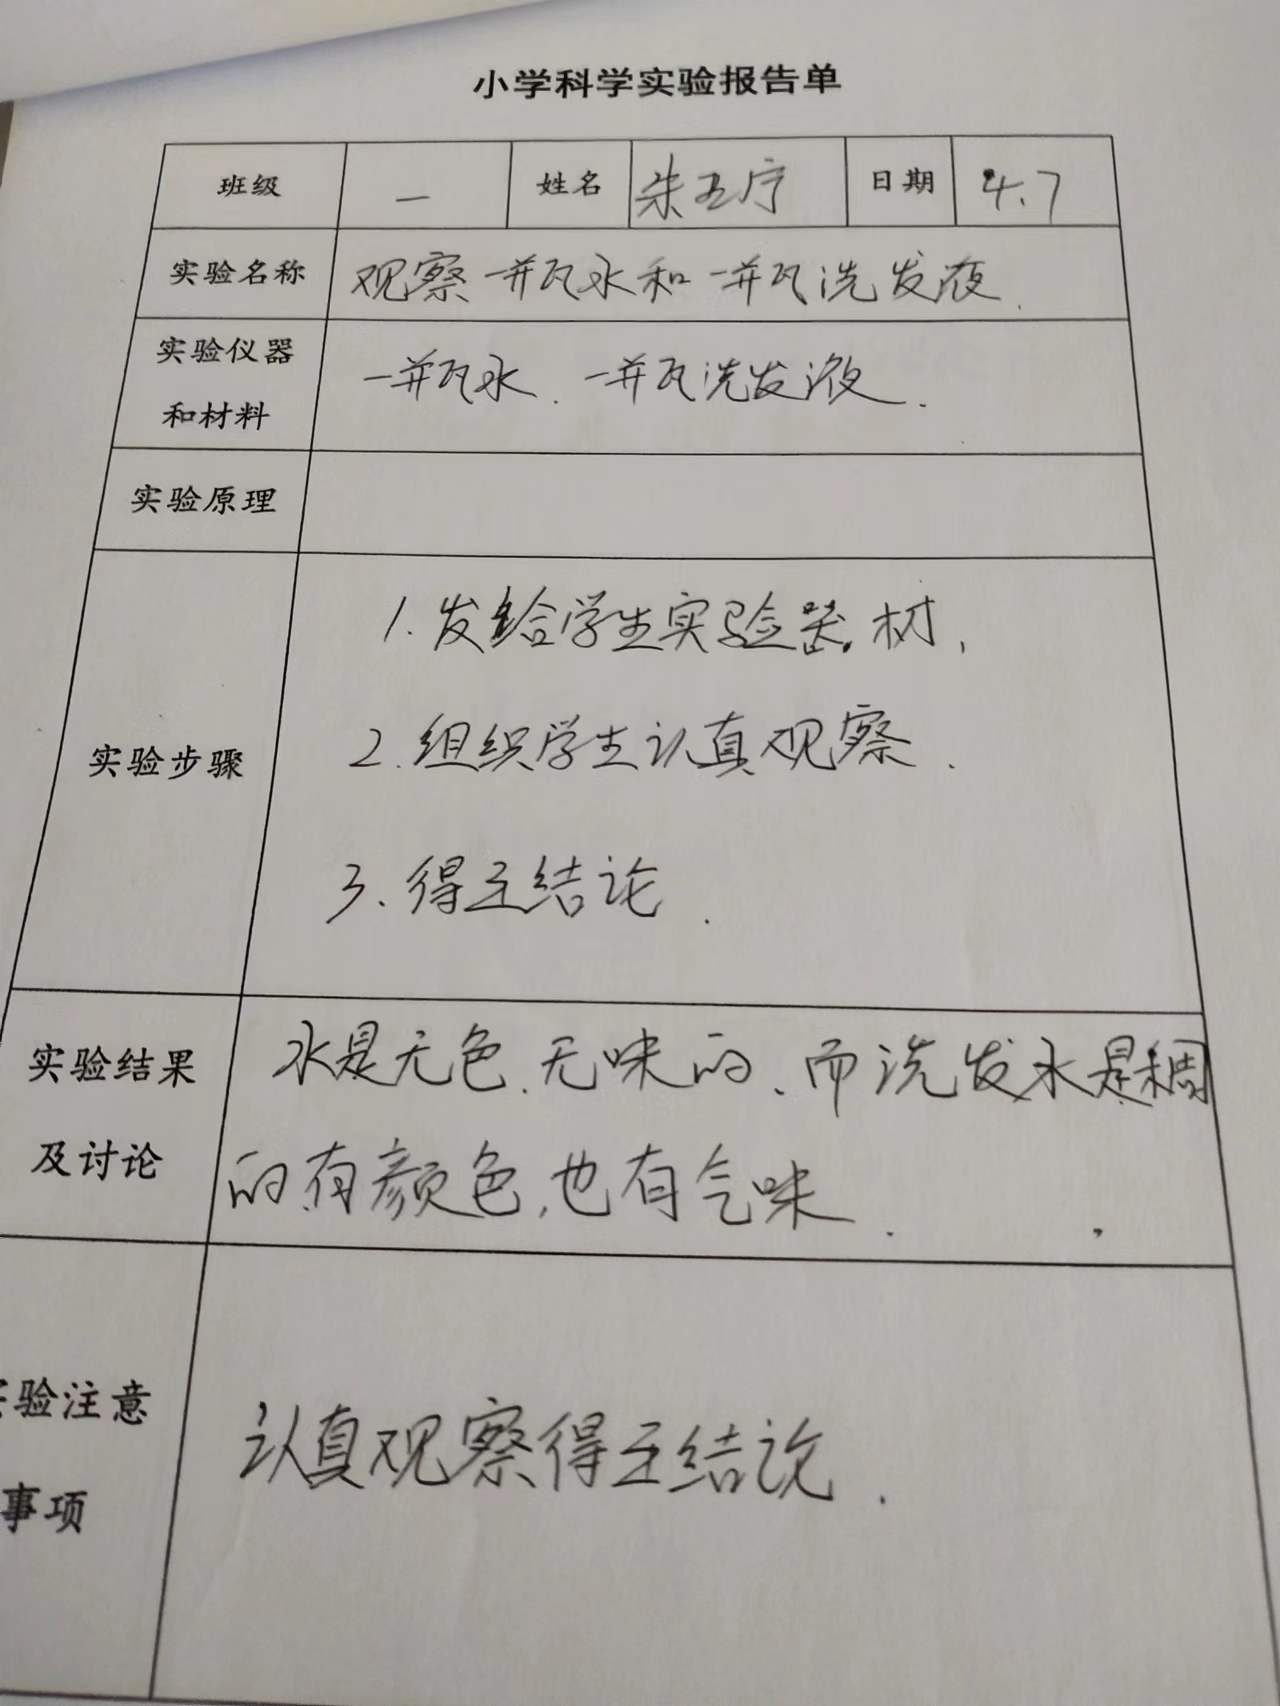 小学科学实验报告单
班级 一 姓名 朱 日期 4.7
实验名称 观察一瓶水和一瓶洗发液.
实验仪器
和材料
一瓶水、一瓶洗发液.
实验原理
实验步骤
1.发给学生实验器材,
2.组织学生认真观察.
3.得正结论.
实验结果
及讨论
水是无色、无味的、而洗发水是稠
的有颜色,也有气味.
实验注意
事项
认真观察得正结论.